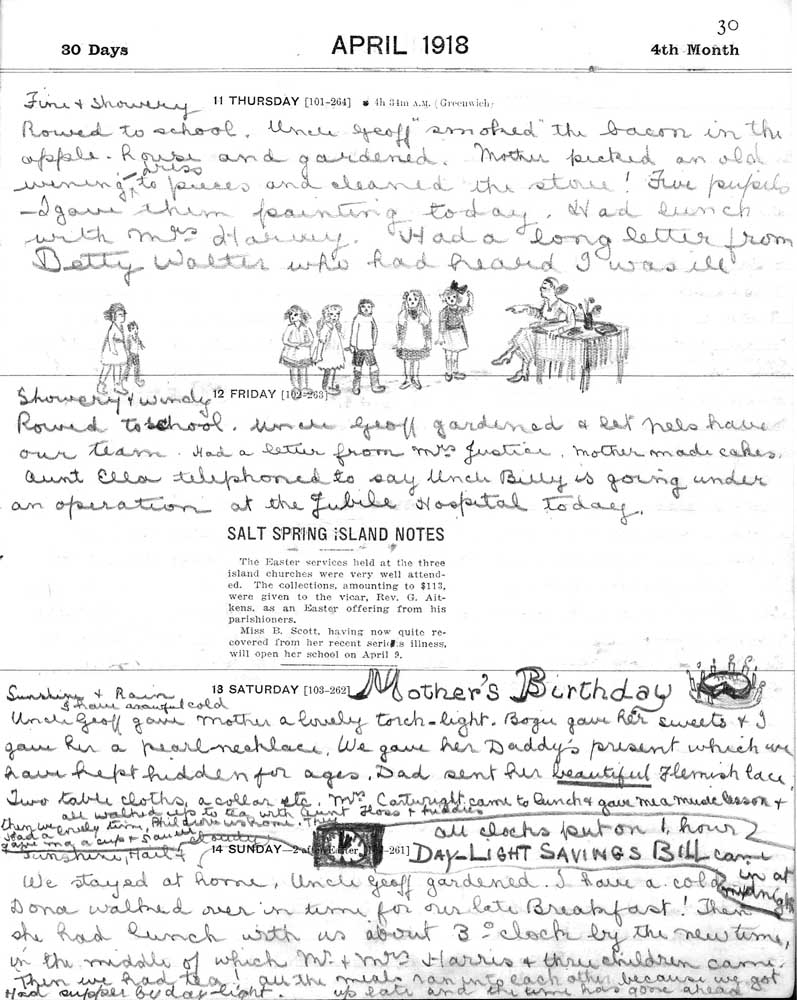 30
30 Days
APRIL 1918
4th Month
Fine & Showery
11 THURSDAY [101-264] 4h 34m A.M. (Greenwich)
Rowed to school. Uncle Geoff "smoked" the bacon in the
apple-house and gardened. Mother picked an old
evening-dress to pieces and cleaned the stove! Five pupils
– I gave them painting today. Had lunch
with Mrs Harvey. Had a long letter from
Betty Walter who had heard I was ill
Showery & windy
12 FRIDAY [102-263]
Rowed to school. Uncle Geoff gardened & let Nels have
our team. Had a letter from Mrs Justice. Mother made cakes.
Aunt Ella telephoned to say Uncle Billy is going under
an operation at the Jubile Hospital today.
SALT SPRING ISLAND NOTES
The Easter services held at the three
island churches were very well attend-
ed. The collections, amounting to $113,
were given to the vicar, Rev. G. Ait-
kens, as an Easter offering from his
parishioners.
Miss B. Scott, having now quite re-
covered from her recent serious illness,
will open her school on April 9.
Sunshine & Rain
I have an awful cold
13 SATURDAY [103-262]
Mother's Birthday
Uncle Geoff gave Mother a lovely torch-light. Bogie gave her sweets & I
gave her a pearl-necklace. We gave her Daddy's present which we
have kept hidden for ages. Dad sent her beautiful Flemish lace
Two table cloths, a collar etc. Mrs Cartwright came to lunch & gave me a music lesson &
then we all walked up to tea with Aunt Floss &
Had a lovely time, Phil Lowe is home. They
gave me a cup & saucer
Sunshine, Hail & cloudy
14 SUNDAY—2 after Easter -261]
all clocks put on 1 hour
DAY-LIGHT SAVINGS BILL came
in at
midnight
We stayed at home, Uncle Geoff gardened. I have a cold
Dona walked over in time for our late Breakfast! Then
she had lunch with us about 3 o'clock by the new time,
in the middle of which Mr & Mrs Harris & three children came.
Then we had tea! all the meals ran into each other because we got
Had supper by day-light. up late and the time has gone ahead